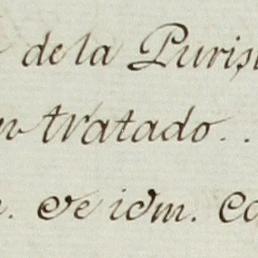 de la Puris
tratado..
de idm. Co